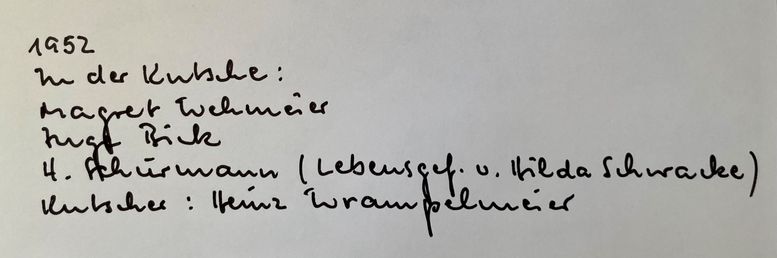 1952
In der Kutsche:
Magret Wehmeier
Bick
H. Schürmann (Lebensgef. v. Hilda Schwacke)
Kutscher: Heinz Wrampelmeier